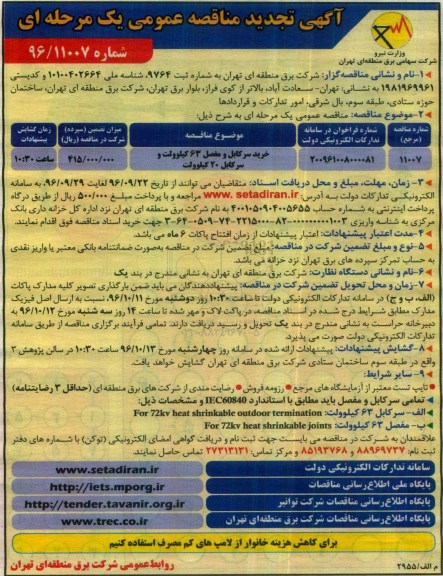 آگهی تجدید مناقصه عمومی یک مرحله ای
شماره ۹۶/۱۱۰۰۷
وزارت نیرو
شرکت سهامی برق منطقه‌ای تهران
۱-نام و نشانی مناقصه‌گزار: شرکت برق منطقه ای تهران به شماره ثبت ۹۷۶۴، شناسه ملی ۱۰۱۰۰۴۰۲۶۶۴ و کدپستی
۱۹۸۱۹۶۹۹۶۱ به نشانی: تهران- سعادت آباد، بالاتر از کوی فراز، بلوار برق تهران، شرکت برق منطقه‌ای تهران، ساختمان
حوزه ستادی، طبقه سوم، بال شرقی، امور تدارکات و قراردادها
۲-موضوع مناقصه: مناقصه عمومی یک مرحله ای به شرح ذیل:
شماره مناقصه
شماره فراخوان در سامانه تدارکات الکترونیکی دولت
موضوع مناقصه
میزان تضمین (سپرده) شرکت در مناقصه (ریال)
زمان گشایش پیشنهادات
۱۱۰۰۷
۲۰۰۹۶۱۰۰۸۰۰۰۰۸۱
خرید سرکابل و مفصل ۶۳ کیلوولت و
سرکابل ۲۰ کیلوولت
۴۱۵/۰۰۰/۰۰۰
ساعت ۱۰:۳۰
۳- زمان، مهلت، مبلغ و محل دریافت اسناد: متقاضیان می توانند از تاریخ ۹۶/۰۹/۲۲ لغایت ۹۶/۰۹/۲۹، به سامانه
الکترونیکی تدارکات دولت به آدرس: www.setadiran.ir مراجعه و با پرداخت مبلغ ۵۰۰/۰۰۰ ریال از طریق درگاه
پرداخت اینترنتی به شماره حساب ۴۰۰۱۵۰۹۰۴۰۰۵۶۵۵ به نام شرکت برق منطقه ای تهران نزد اداره کل خزانه داری بانک
مرکزی به شناسه واریزی جهت خرید اسناد مناقصه فوق اقدام نمایند.
۴-مدت اعتبار پیشنهادات: اعتبار پیشنهادات از زمان افتتاح پاکات ۶ ماه می باشد.
۵-نوع و مبلغ تضمین شرکت در مناقصه: مبلغ تضمین شرکت در مناقصه به‌صورت ضمانتنامه بانکی معتبر یا واریز نقدی
به حساب تمرکز سپرده های برق تهران نزد خزانه می باشد.
۶-نام و نشانی دستگاه نظارت: شرکت برق منطقه ای تهران به نشانی مندرج در بند یک
۷- زمان و محل تحویل تضمین شرکت در مناقصه: پیشنهاددهندگان می باید ضمن بارگذاری تصویر کلیه مدارک پاکات
(الف، ب و ج) در سامانه تدارکات الکترونیکی دولت تا ساعت ۱۰:۳۰ روز دوشنبه مورخ ۹۶/۱۰/۱۱، نسبت به ارسال اصل فیزیک
مدارک مطابق شرایط درج شده در اسناد مناقصه، در پاکت لاک و مهر شده تا ساعت ۱۴ روز سه شنبه مورخ ۹۶/۱۰/۱۲ به
دبیرخانه حراست به نشانی مندرج در بند یک تحویل و رسید دریافت دارند. تمامی فرآیند برگزاری مناقصه از طریق سامانه
تدارکات الکترونیکی دولت صورت می پذیرد.
۸-گشایش پیشنهادات: پیشنهادات ارائه شده در سامانه روز چهارشنبه مورخ ۹۶/۱۰/۱۳ ساعت ۱۰:۳۰ در سالن پژوهش ۳
واقع در طبقه سوم ساختمان ستادی شرکت برق منطقه ای تهران گشایش خواهد یافت.
۹- سایر شرایط:
تایپ تست معتبر از آزمایشگاه های مرجع • رزومه فروش • رضایت مندی از شرکت های برق منطقه ای (حداقل ۳ رضایتنامه)
تمامی سرکابل و مفصل باید مطابق با استاندارد IEC60840 و مشخصات ذیل:
الف- سرکابل ۶۳ کیلوولت: For 72kv heat shrinkable outdoor termination
ب- مفصل ۶۳ کیلوولت: For 72kv heat shrinkable joints
علاقمندان به شرکت در مناقصه می بایست جهت ثبت نام و دریافت گواهی امضای الکترونیکی (توکن) با شماره های دفتر
ثبت نام: ۸۸۹۶۹۷۳۷ و ۸۵۱۹۳۷۶۸ و مرکز تماس: ۲۷۳۱۳۱۳۱ تماس حاصل نمایند.
سامانه تدارکات الکترونیکی دولت www.setadiran.ir
پایگاه ملی اطلاع رسانی مناقصات http://iets.mporg.ir
پایگاه اطلاع‌رسانی مناقصات شرکت توانیر http://tender.tavanir.org.ir
پایگاه اطلاع‌رسانی مناقصات شرکت برق منطقه‌ای تهران www.trec.co.ir
برای کاهش هزینه خانوار از لامپ های کم مصرف استفاده کنیم
روابط عمومی شرکت برق منطقه‌ای تهران
م الف/۲۹۵۵